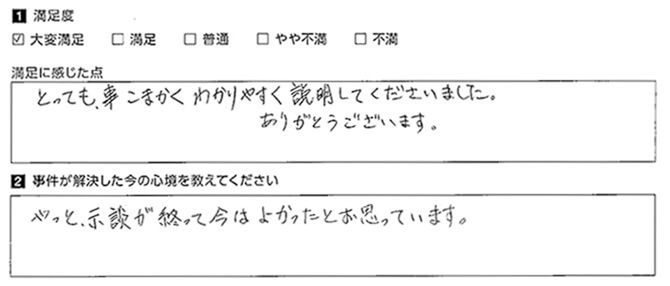 1 満足度
☑ 大変満足 □ 満足 □ 普通 □ やや不満 □ 不満
満足に感じた点
とっても、事こまかくわかりやすく説明してくださいました。
ありがとうございます。
2 事件が解決した今の心境を教えてください
やっと、示談が終って今はよかったとお思っています。